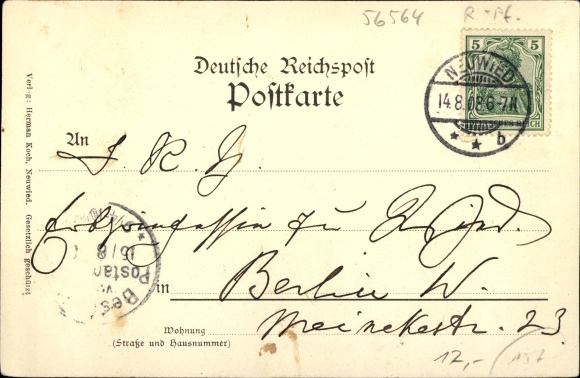 56564
R-Pf.
5 5
Deutsche Reichspost
Postkarte
NEUWIED
14.8.08.6-7N
* * b
DEUTSCHES REICH
An I. K. H.
Erbprinzessin zu Wied.
15/8
Postamt
Best
in Berlin W.
Wohnung
(Straße und Hausnummer)
Meinekestr. 23
12,-
Verlag: Herman Koch, Neuwied. Gesetzlich geschützt